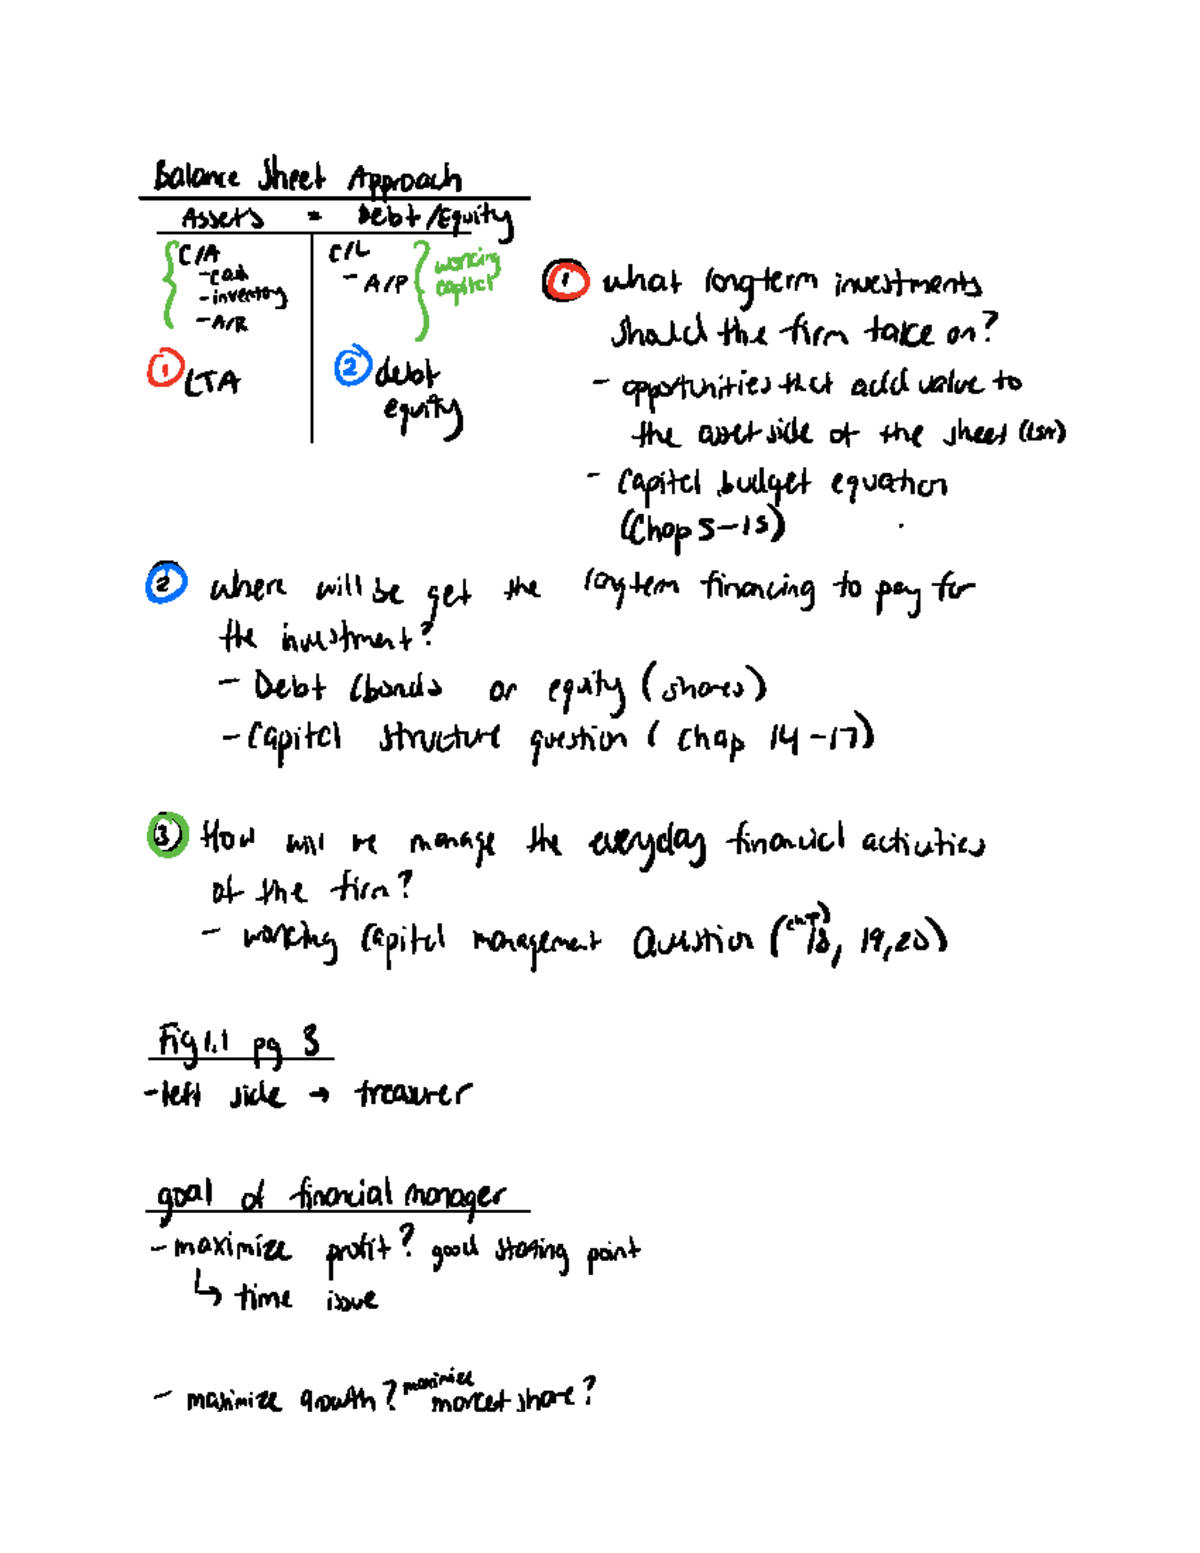 Balance Sheet Approach
Assets = Debt/Equity
C/A
-cash
-inventory
-A/R
① LTA
C/L
- A/P
working
capital
② debt
equity
① what longterm investments
should the firm take on?
- opportunities that add value to
the asset side of the sheet
- Capital budget equation
(Chap 5-13)
② where will be get the longterm financing to pay for
the investment?
- Debt (bonds or equity (shares)
- Capital structure question ( chap 14-17)
③ How will we manage the everyday financial activities
of the firm?
- working capital management Question (18, 19,20)
Fig 1.1 pg 3
-left side → treasurer
goal of financial manager
- maximize profit? good starting point
↳ time issue
- maximize growth? maximize market share?